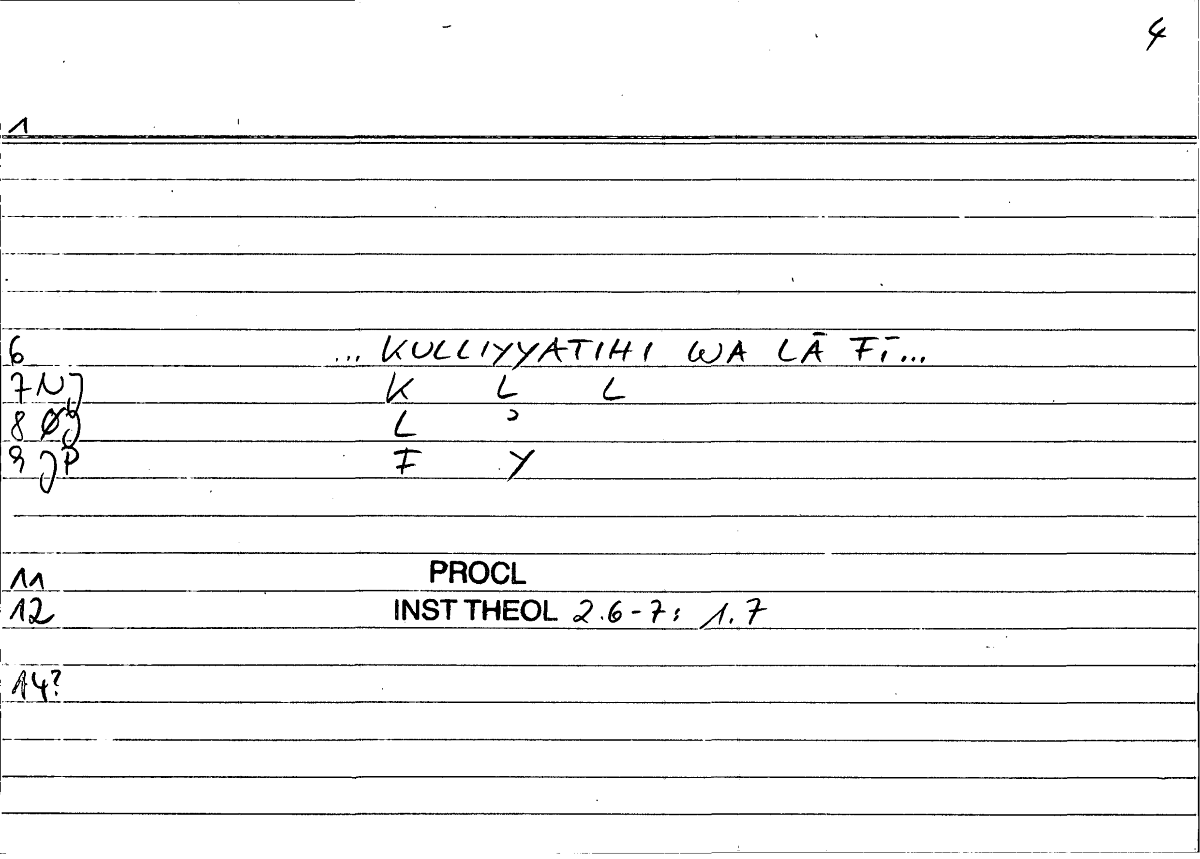 4
1
6 ... KULLIYYATIHI WA LĀ FĪ...
7 NJ K L L
8 L ʾ
9 JP F Y
11 PROCL
12 INST THEOL 2.6-7: 1.7
14?